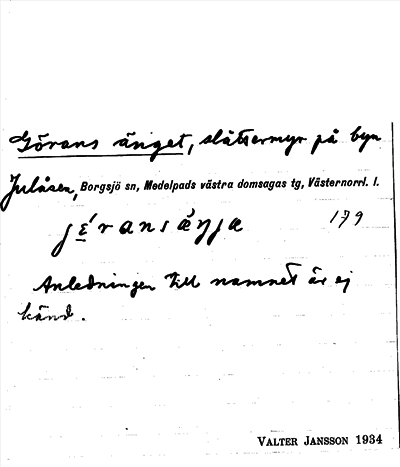 Görans änget, slåttermyr på byn
Julåsen, Borgsjö sn, Medelpads västra domsagas tg, Västernorrl. l.
179
Anledningen till namnet är ej
känd.
VALTER JANSSON 1934